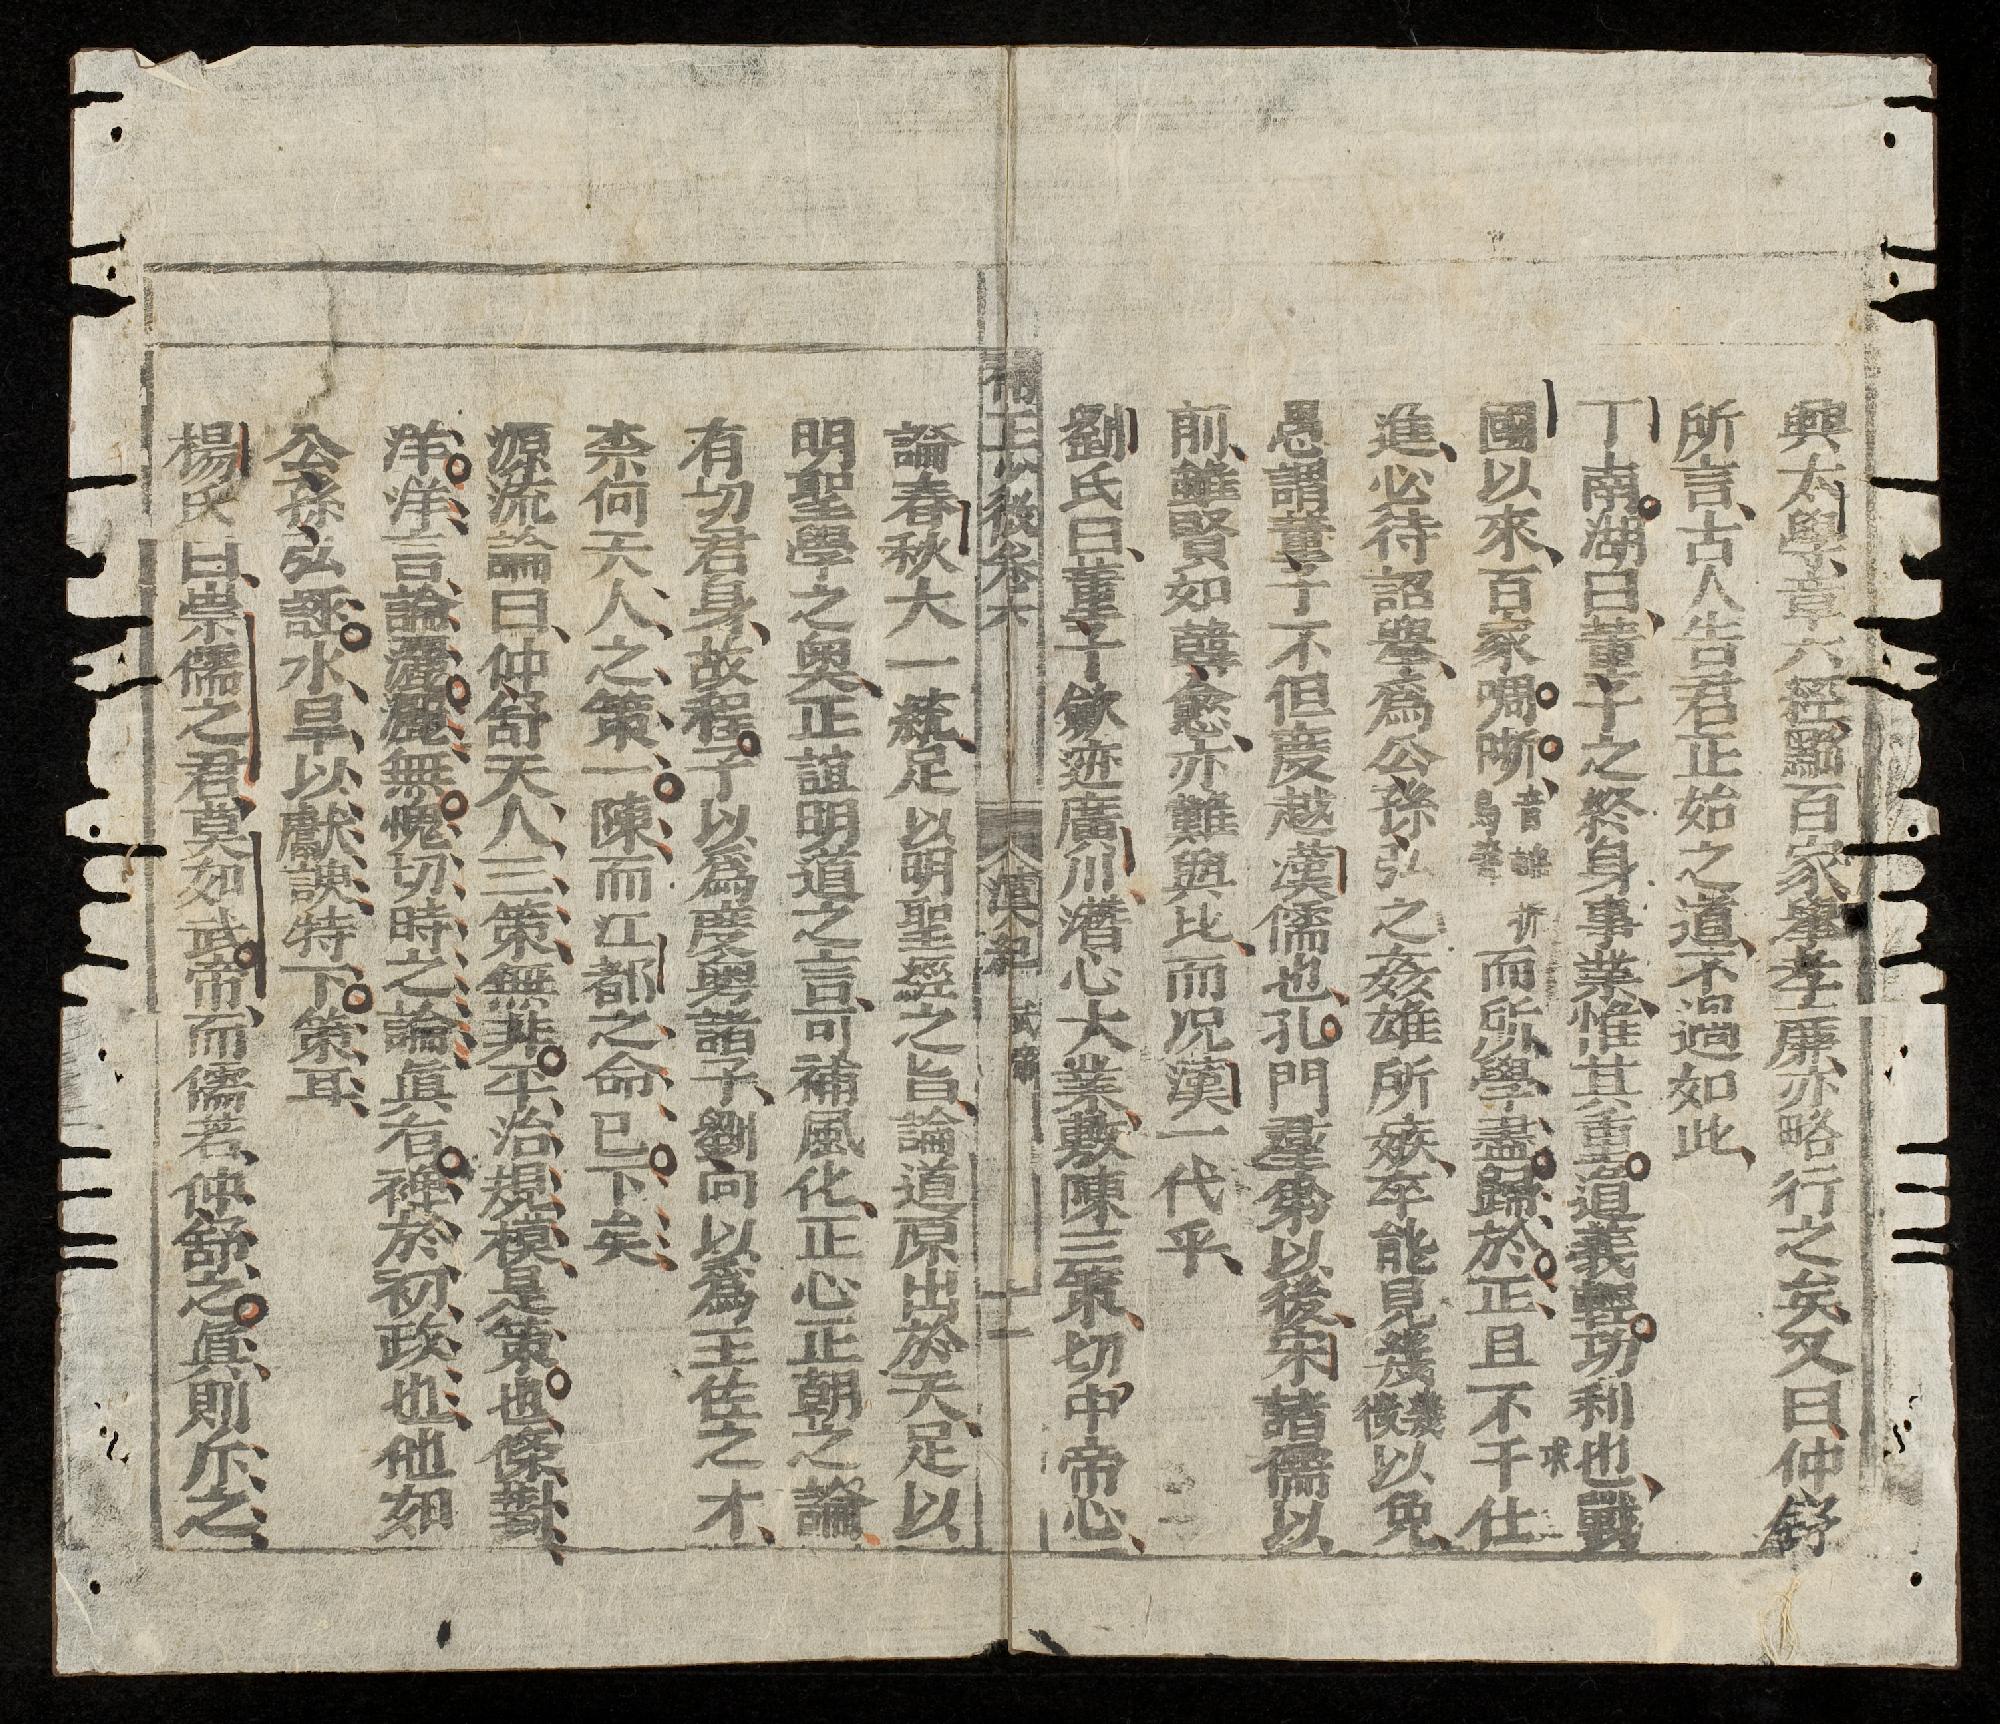 興太學章六經黜百家擧孝廉亦略行之矣又曰仲舒
所言古人告君正始之道不過如此
丁南湖曰董子之終身事業惟其重道義輕功利也戰
國以來百家啁哳而所學盡歸於正且不干仕
進必待詔擧爲公孫弘之姦雄所嫉卒能見幾以免
愚謂董子不但度越漢儒也孔門羣弟以後宋諸儒以
前雖賢如韓愈亦難與比而况漢一代乎
劉氏曰董子斂迹廣川潛心大業敷陳三策切中帝心
卷六
漢紀 武帝
十一
論春秋大一統足以明聖經之旨論道原出於天足以
明聖學之奧正誼明道之言可補風化正心正朝之論
有切君身故程子以爲度越諸子劉向以爲王佐之才
柰何天人之策一陳而江都之命已下矣
源流論曰仲舒天人三策無非平治規模是策也條對
洋洋言論灑麗無愧切時之論眞有裨於初政也他如
公孫弘誣水旱以獻諛特下策耳
楊氏曰崇儒之君莫如武帝而儒者仲舒之眞則斥之